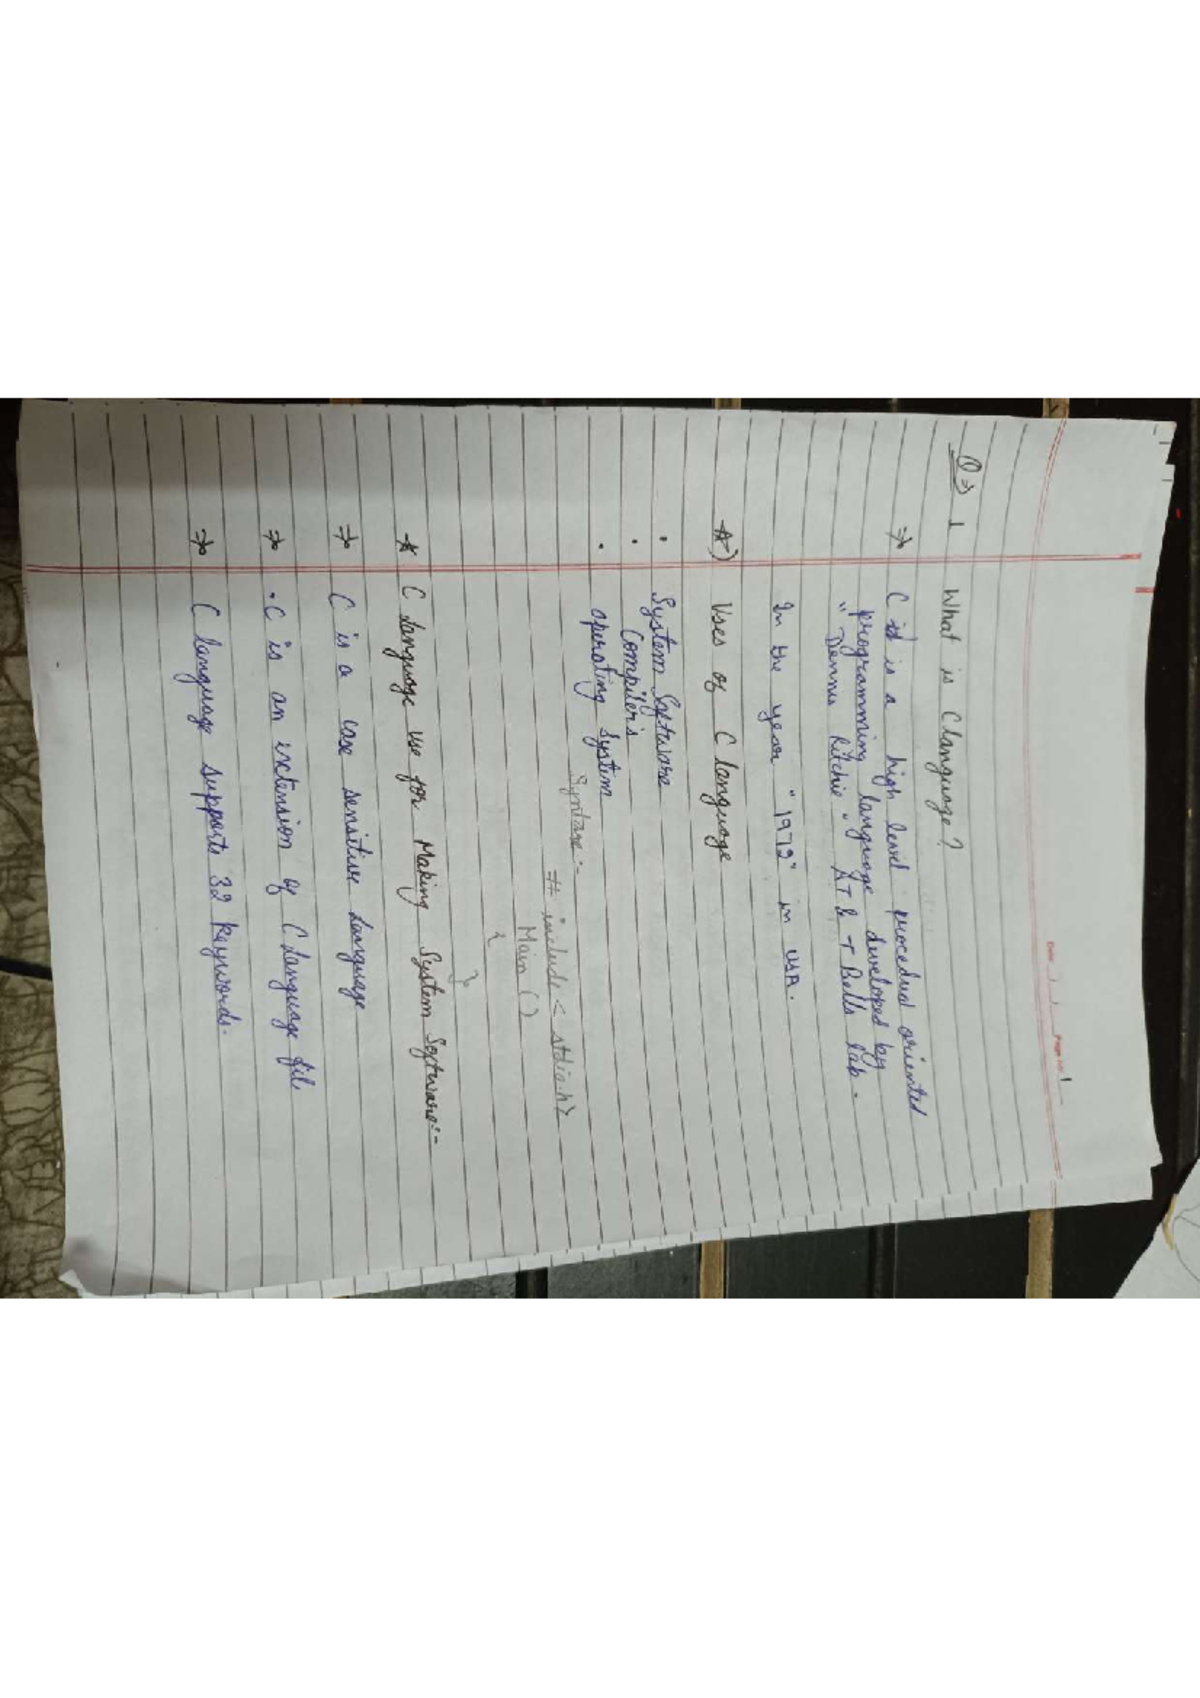 Date / / Page no: 1
Q⇒ 1 What is C language?
⇒ C is a high level procedual oriented
programming language developed by
"Dennis Ritchie" AT & T Bells lab.
In the year "1972" in USA.
*) Uses of C language
• System Software
• Compiler's
• operating system
Syntax:-
# include < stdio.h>
Main ()
{
}
* C language use for Making System Software:-
⇒ C is a case sensitive language
⇒ .C is an extension of C language file
⇒ C language supports 32 keywords.